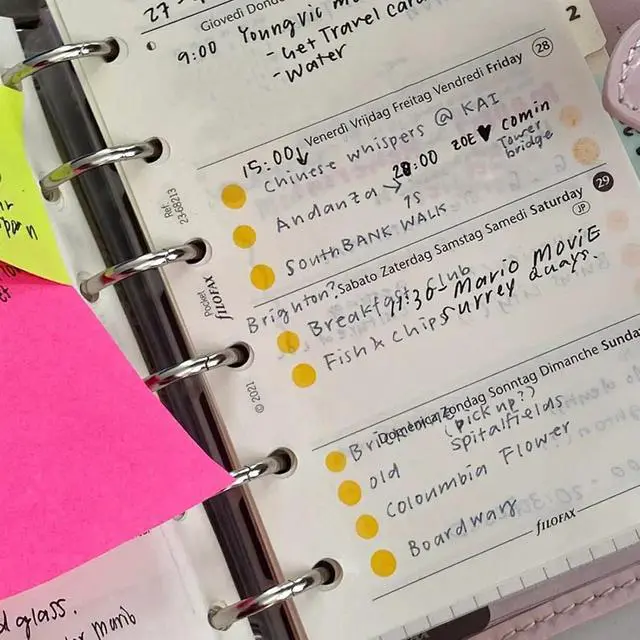 27
Giovedi
9:00 Young Vic
- Get Travel card
- Water
2
28
Venerdi Vrijdag Freitag Vendredi Friday
15:00
Chinese whispers @ KAI
Andanza → 20:00 ZOE ♥ comin
Tower
bridge
SouthBANK WALK
29
Sabato Zaterdag Samstag Samedi Saturday
JP
Brighton?
Breakfast club
- Mario MoviE
Fish & chips
surrey quays.
Domenica Zondag Sonntag Dimanche Sunda
(pick up??)
old spitalfields
Coloumbia Flower
Boardwars
FILOFAX
Ref. 23-68213
Pocket
FILOFAX
© 2021
glass.